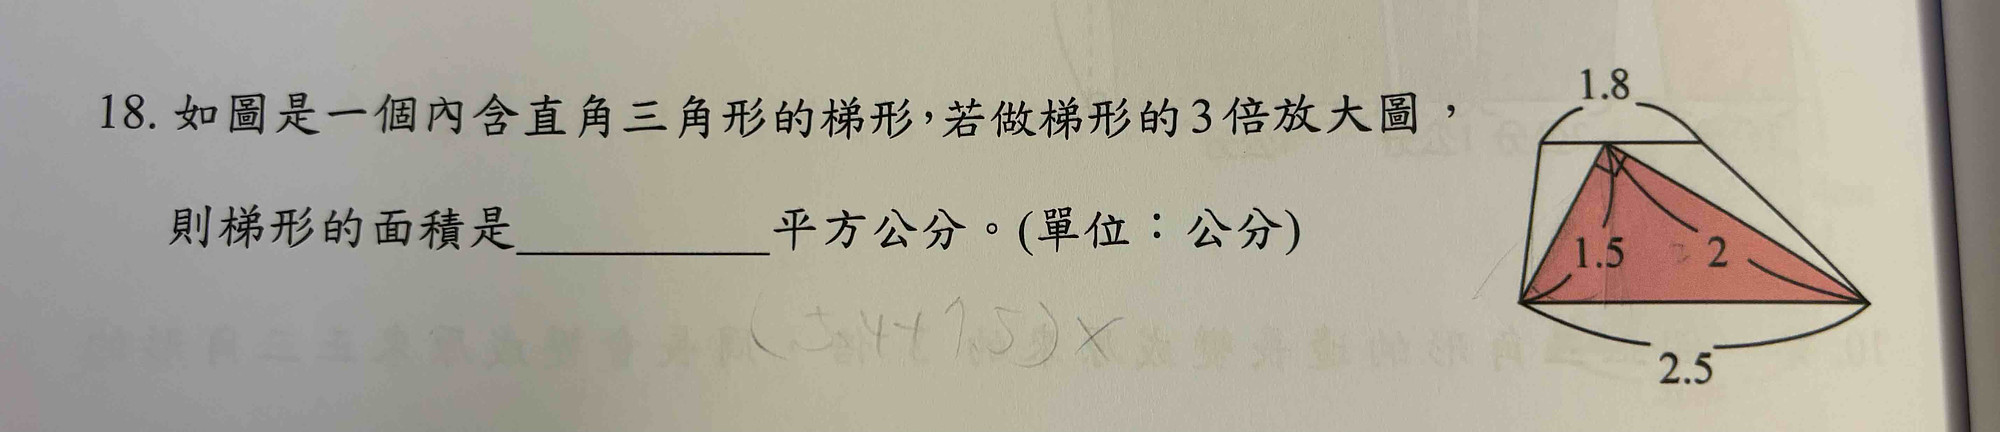 18. 如圖是一個內含直角三角形的梯形，若做梯形的3倍放大圖，
則梯形的面積是__________平方公分。(單位：公分)
1.8
1.5
2
2.5